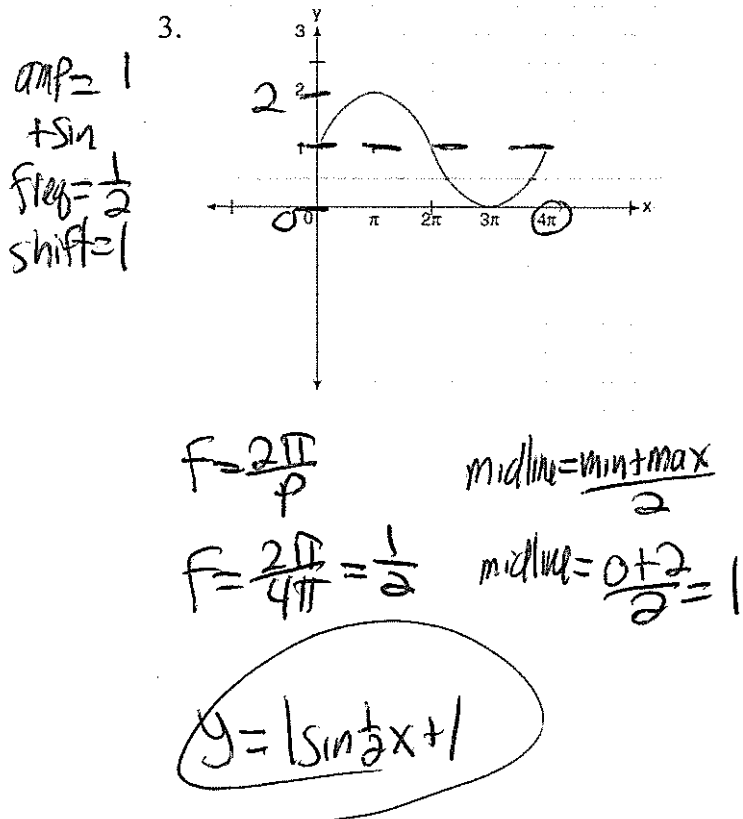 3.
amp= 1
+sin
freq= 1/2
shift=1
y
3
2
2
1
x
0
0
π
2π
3π
4π
F= 2π/P
F= 2π/4π = 1/2
midline= min+max/2
midline= 0+2/2 = 1
y= 1sin 1/2 x+1